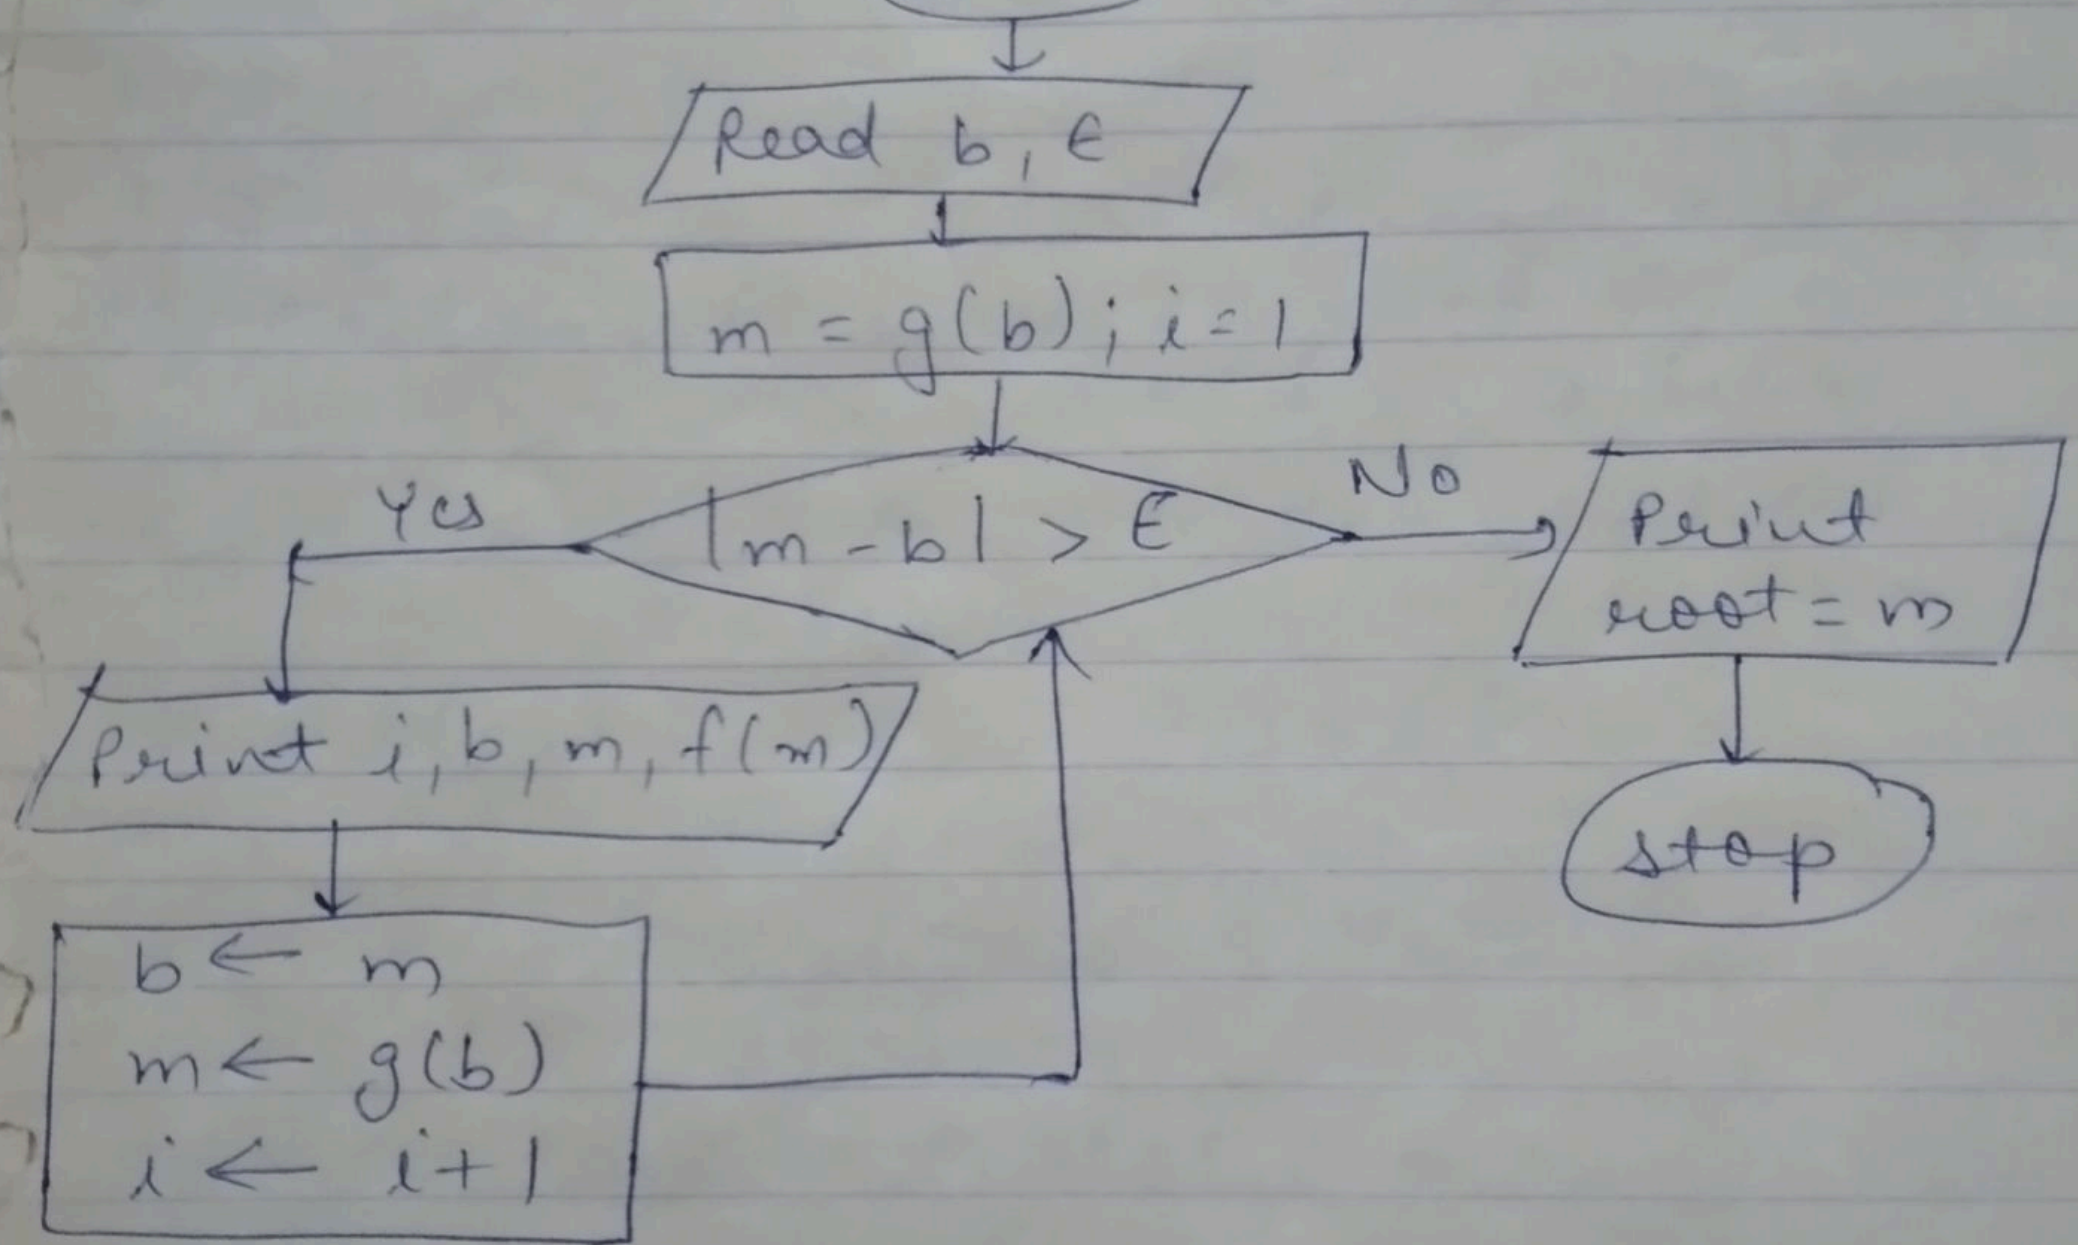 Read b, ε
m = g(b); i = 1
Yes
|m - b| > ε
No
Print
root = m
Print i, b, m, f(m)
stop
b ← m
m ← g(b)
i ← i + 1